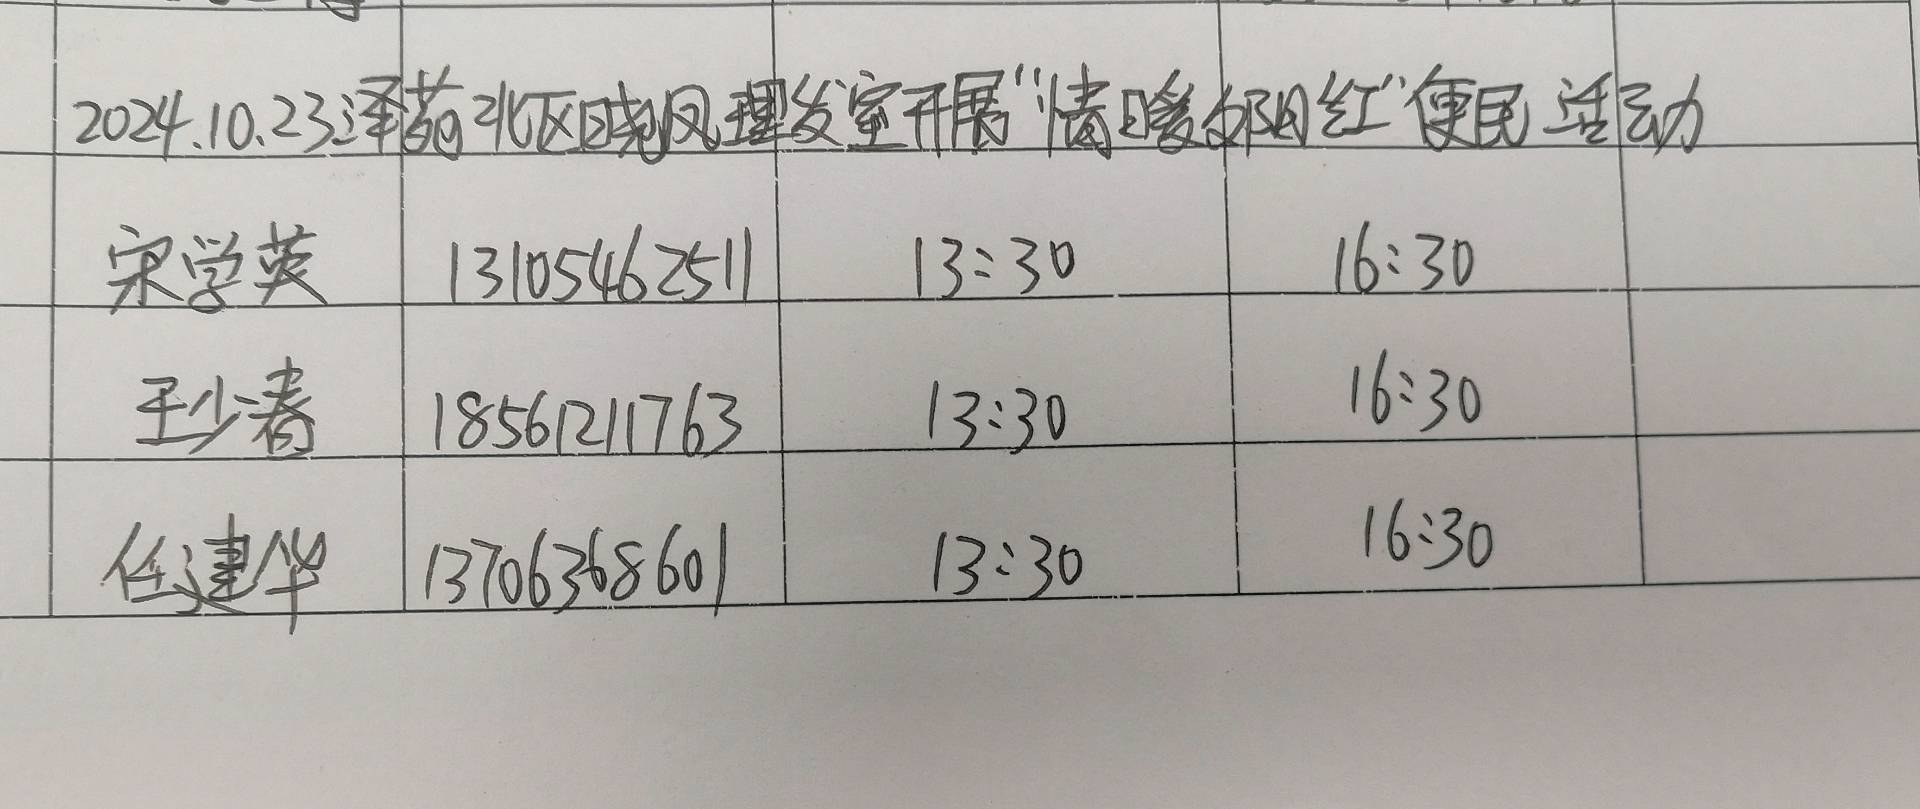 2024.10.23泽苑北区晓凤理发室开展“情暖夕阳红”便民活动
宋学英 13105462511 13:30 16:30
王少涛 18561211763 13:30 16:30
任建华 13706368601 13:30 16:30